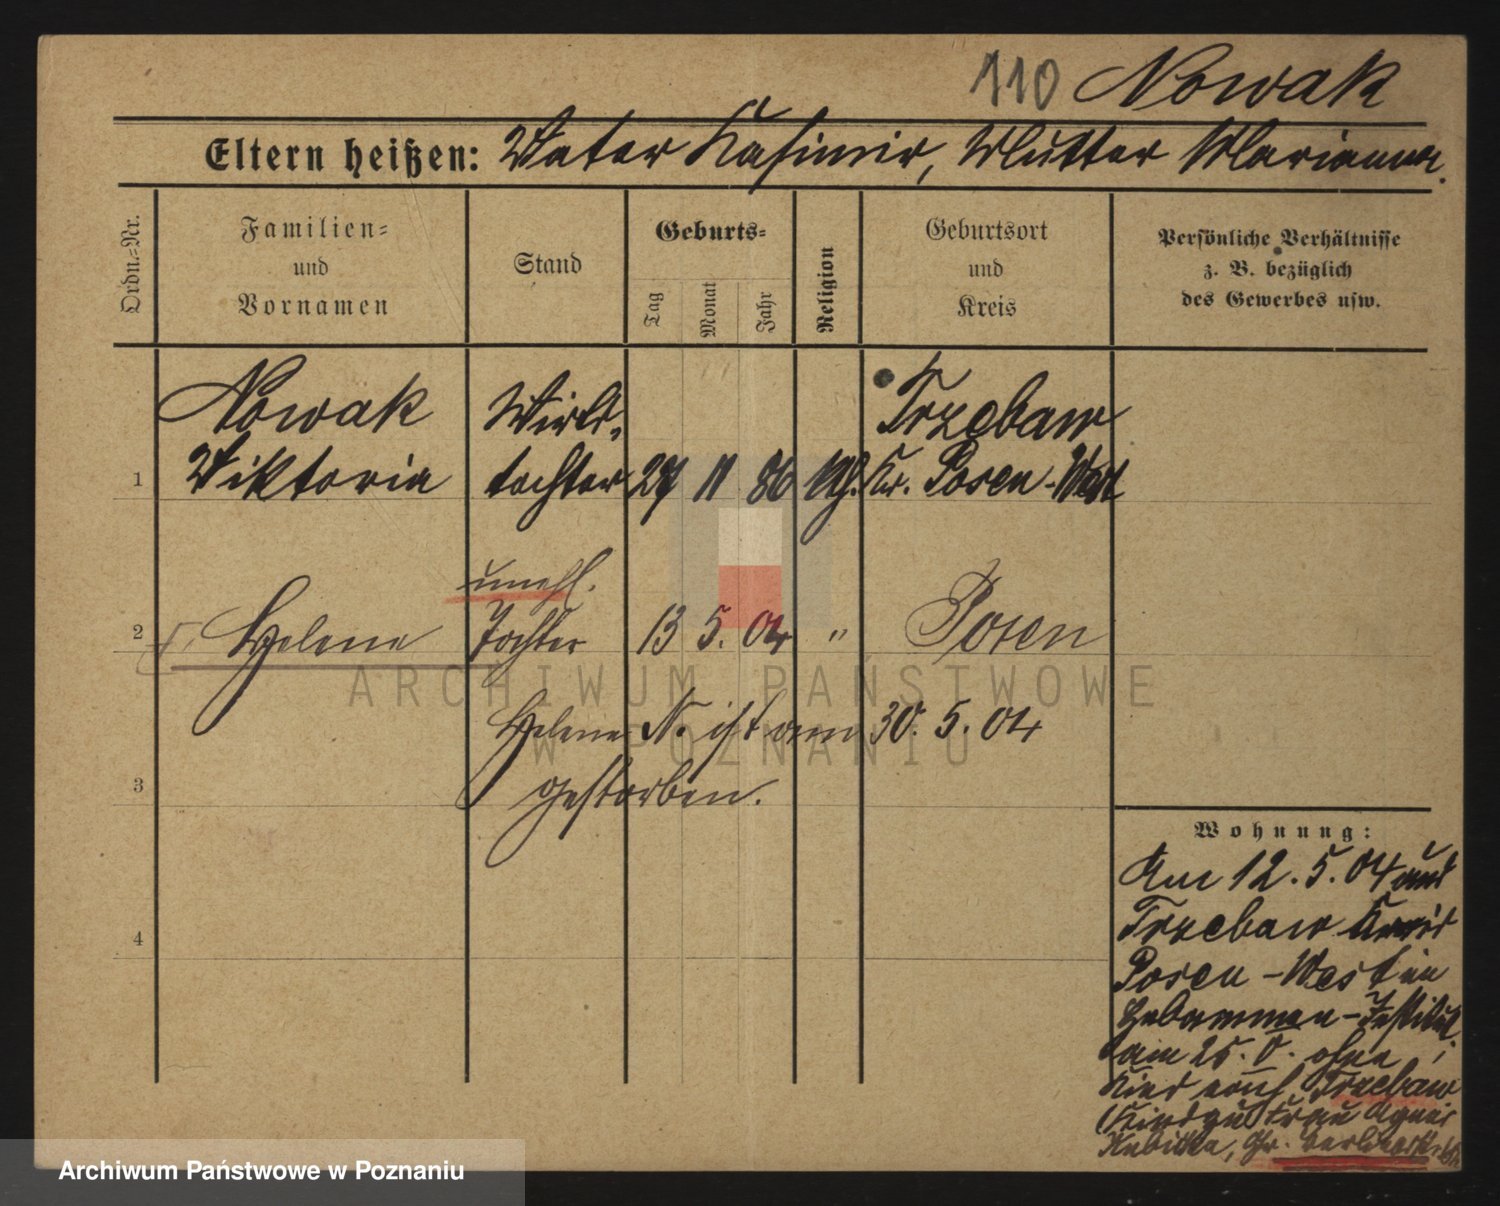 110 Nowak
Eltern heißen: Vater Kasimir, Mutter Marianna.
Ordn.-Nr.
Familien-
und
Vornamen
Stand
Geburts-
Tag
Monat
Jahr
Religion
Geburtsort
und
Kreis
Persönliche Verhältnisse
z. B. bezüglich
des Gewerbes usw.
Nowak Wirts- Trzebaw
1 Viktoria tochter 27 11 86 Kr. Posen-West
unehl.
2 Helene Tochter 13 5. 04 " Posen
Helene N. ist am 30. 5. 04
3 gestorben.
4
Wohnung:
Am 12. 5. 04 aus
Trzebaw Kreis
Posen-West in
Hebammen-Institut
am 25. V. ohne
Kind nach Trzebaw
(Kind zu Frau Agnes
Kubitzka, Gr.
ARCHIWUM PAŃSTWOWE
W POZNANIU
Archiwum Państwowe w Poznaniu